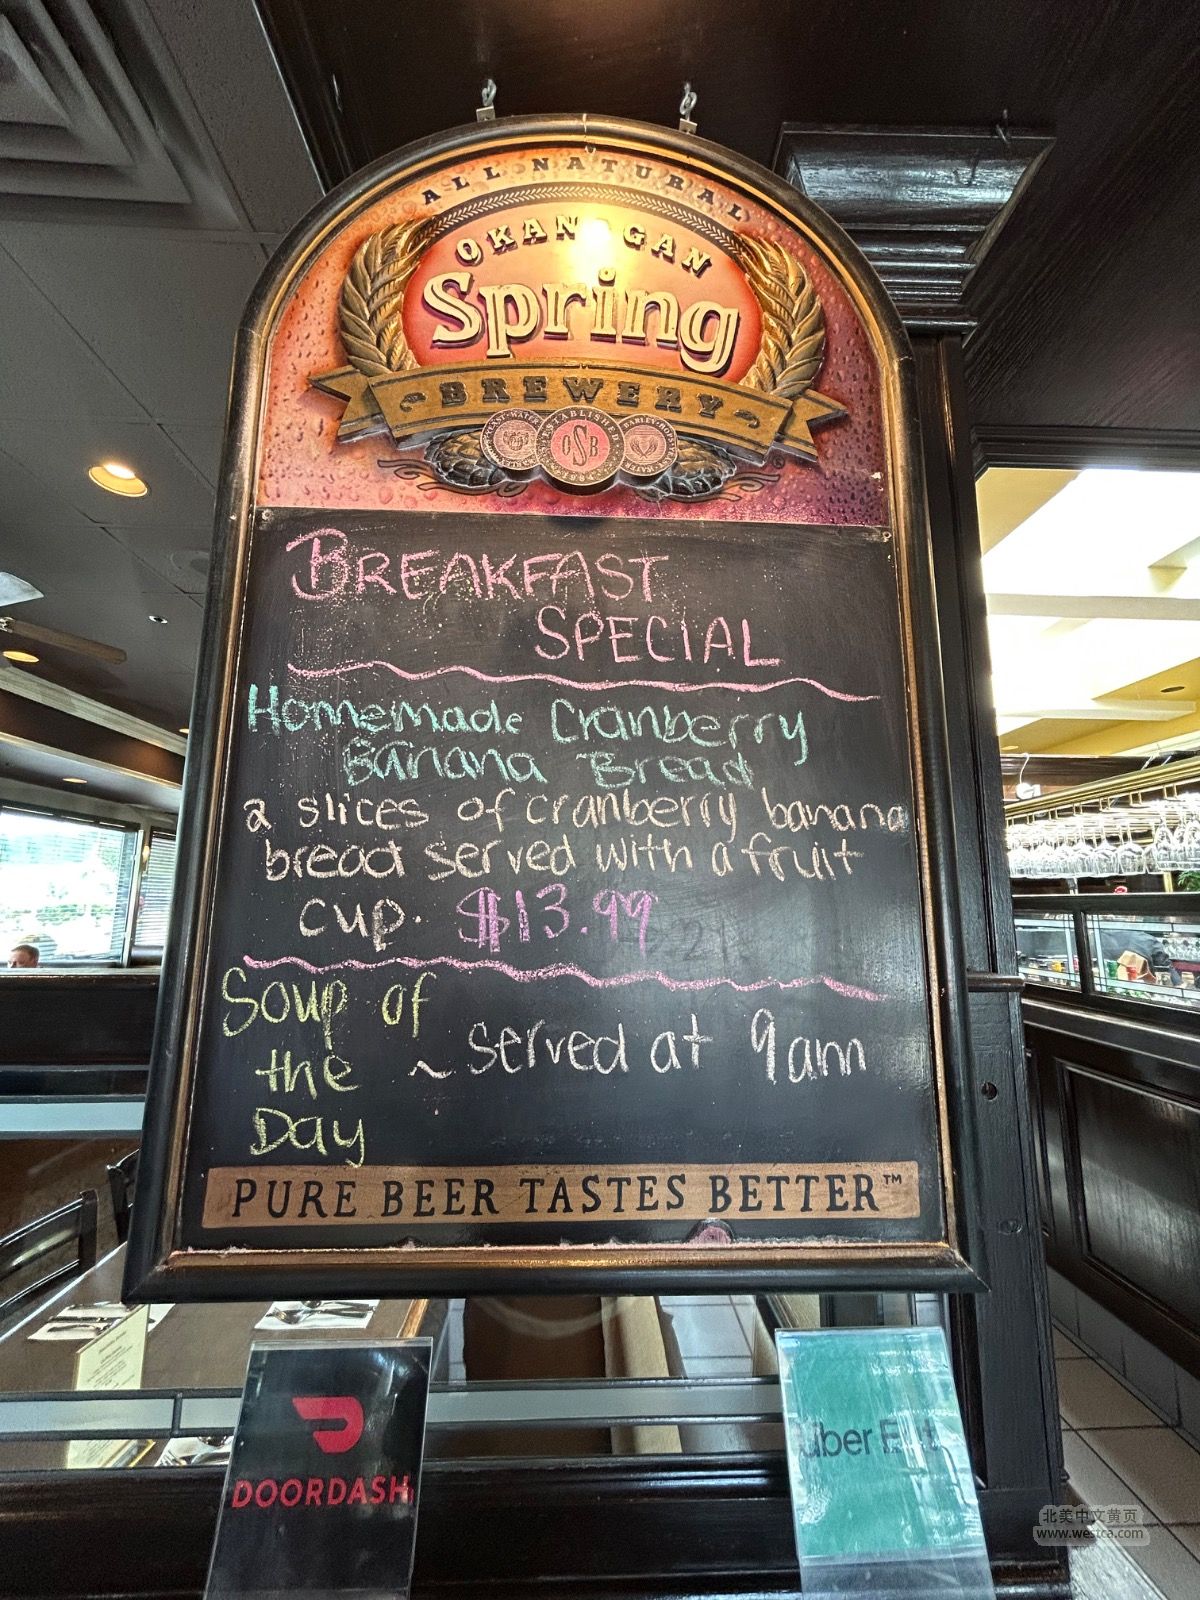 ALL NATURAL
OKANAGAN
Spring
BREWERY
ESTABLISHED
OSB
1984
BREAKFAST
SPECIAL
Homemade Cranberry
Banana Bread
2 slices of cranberry banana
bread served with a fruit
cup. $13.99
Soup of
the
Day
~ served at 9am
PURE BEER TASTES BETTER™
DOORDASH
Uber
北美中文黄页
www.westca.com